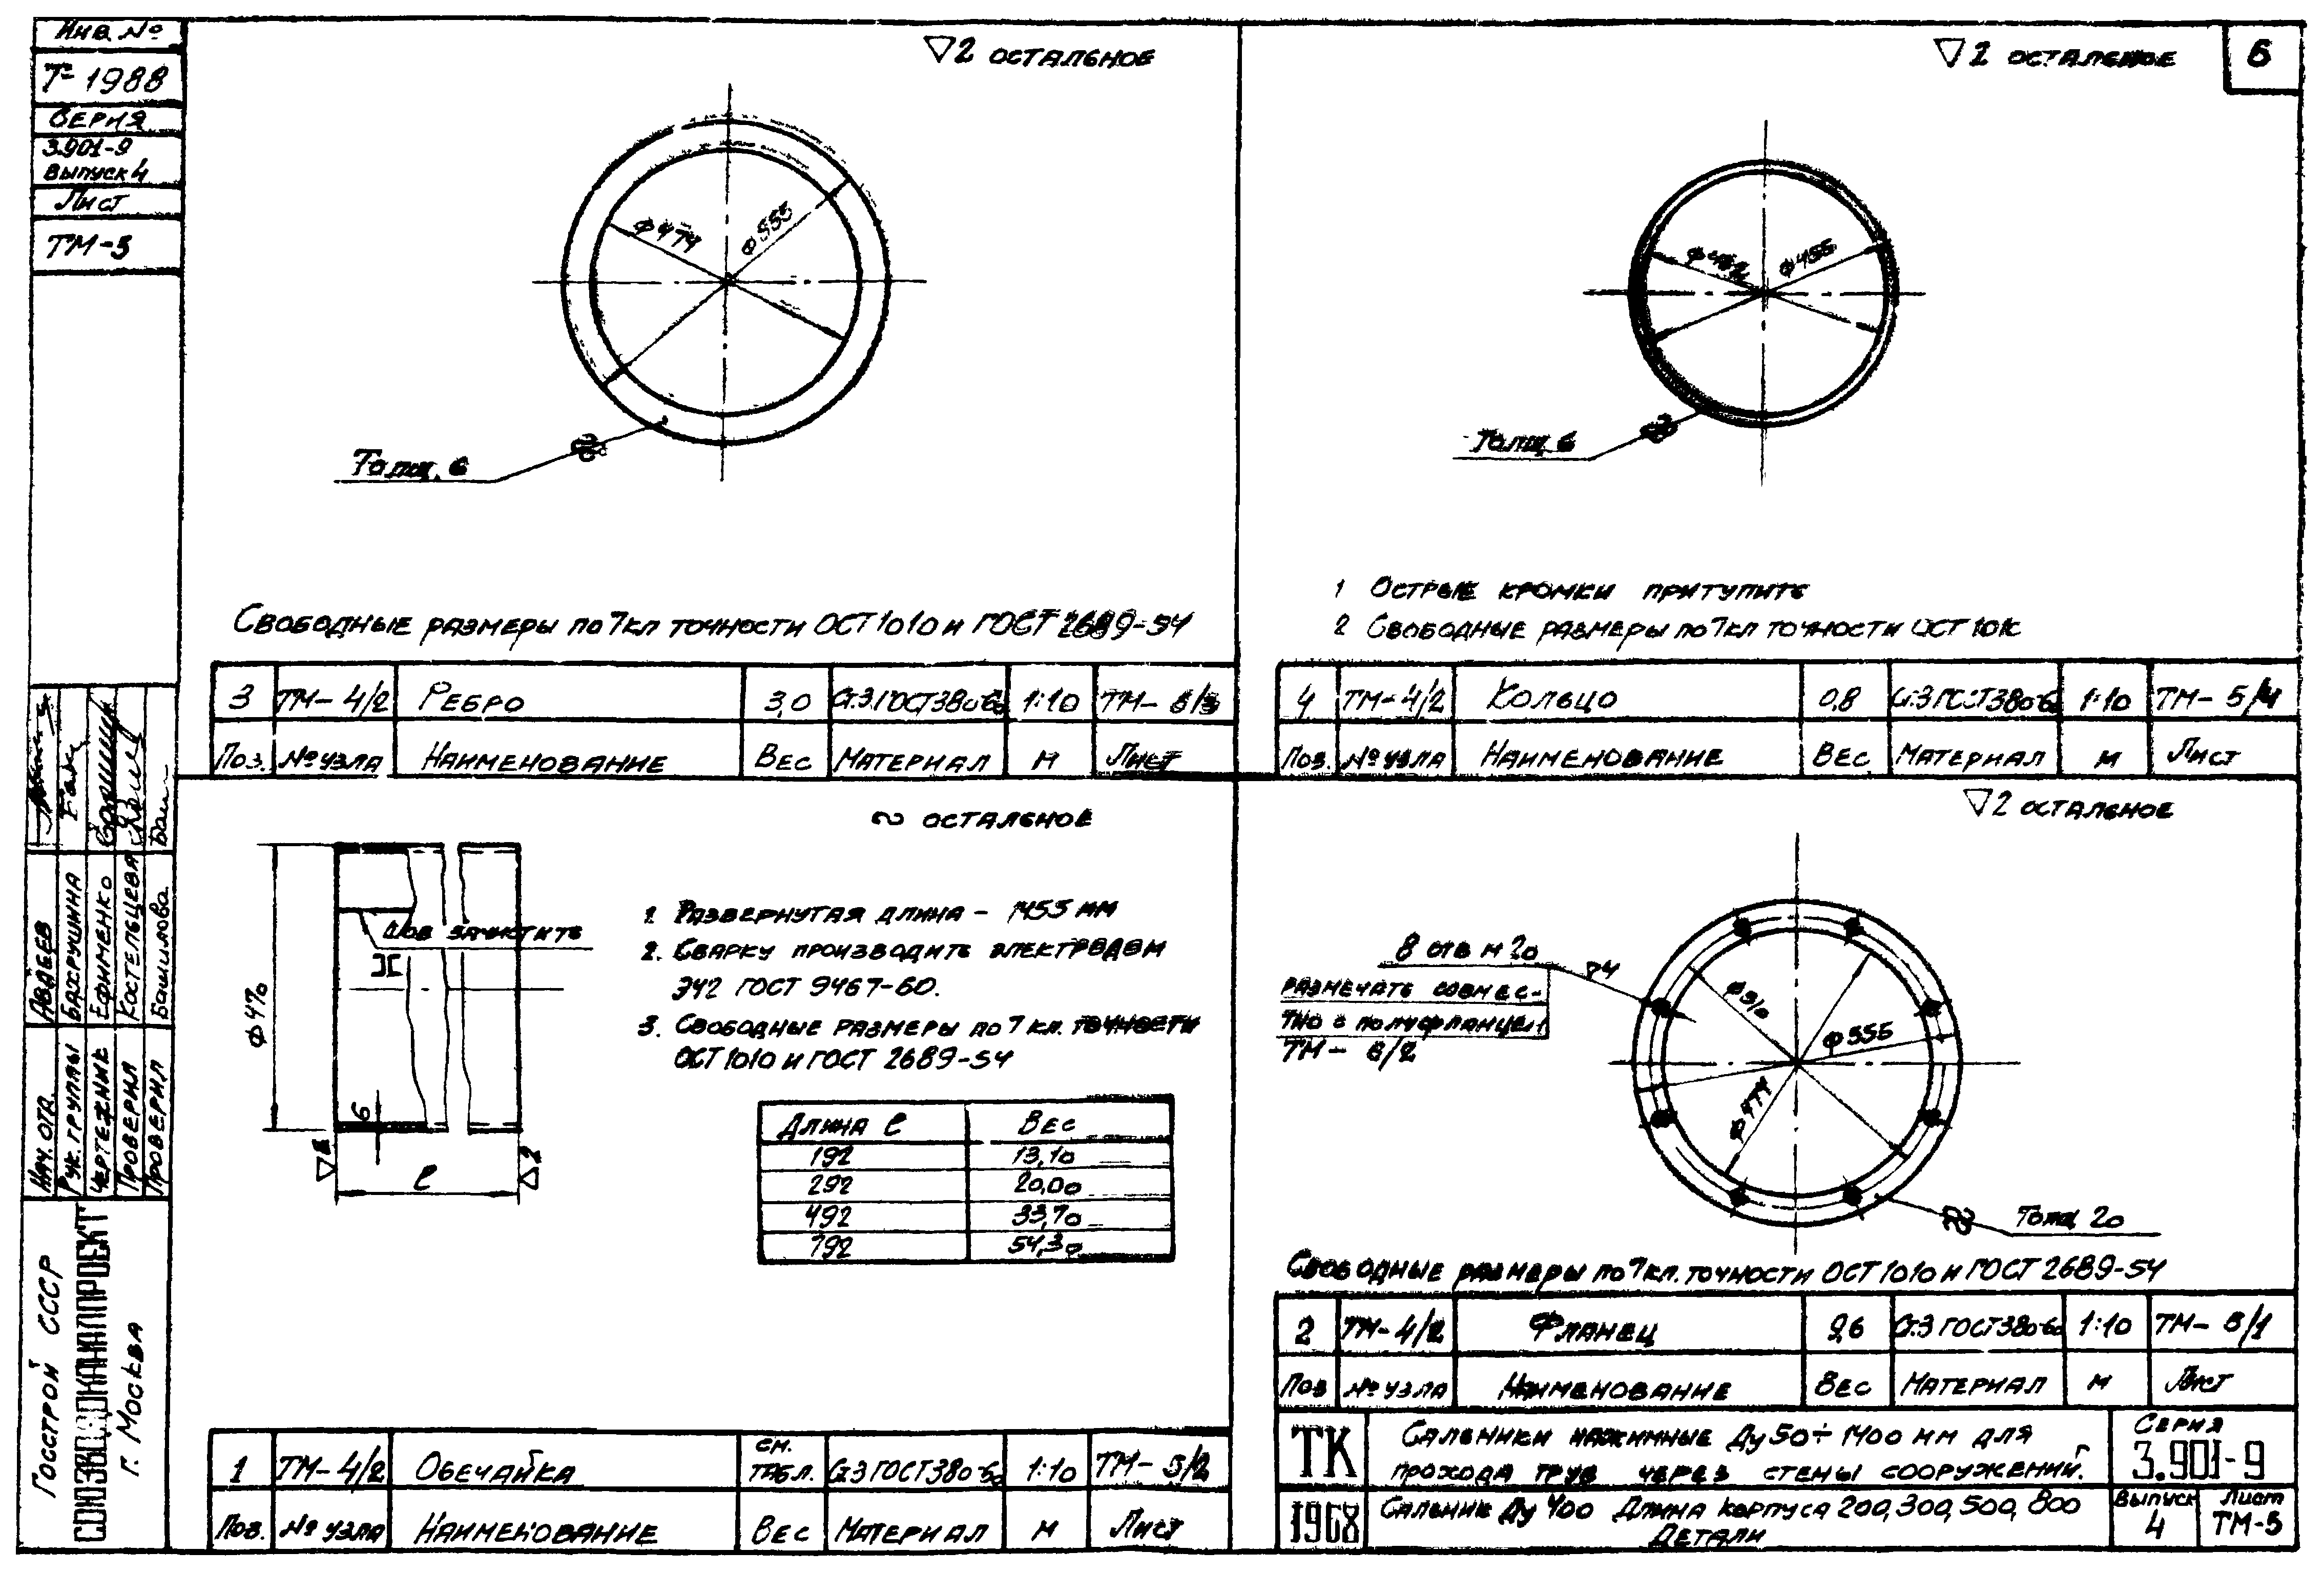 Инв. №
Т-1988
Серия
3.901-9
Выпуск 4
Лист
ТМ-5
▽2 остальное
φ474
φ555
Толщ. 6
Свободные размеры по 7 кл точности ОСТ 1010 и ГОСТ 2689-54
3 ТМ-4/2 Ребро 3,0 Ст.3 ГОСТ 380-60 1:10 ТМ-5/3
Поз. № узла Наименование Вес Материал М Лист
▽2 остальное
6
φ455
Толщ 6
1 Острые кромки притупить
2 Свободные размеры по 7 кл точности ОСТ 1010
4 ТМ-4/2 Кольцо 0,8 Ст.3 ГОСТ 380-60 1:10 ТМ-5/4
Поз. № узла Наименование Вес Материал М Лист
∾ остальное
φ470
Шов зачистить
6
▽2
▽2
ℓ
1. Развернутая длина - 1455 мм
2. Сварку производить электродом
Э42 ГОСТ 9467-60.
3. Свободные размеры по 7 кл. точности
ОСТ 1010 и ГОСТ 2689-54
Длина ℓ Вес
192 13,10
292 20,00
492 33,70
792 54,30
1 ТМ-4/2 Обечайка см. табл. Ст.3 ГОСТ 380-60 1:10 ТМ-5/2
Поз. № узла Наименование Вес Материал М Лист
▽2 остальное
8 отв М20
▽4
размечать совмес-
тно с полуфланцем
ТМ-6/2
φ510
φ555
φ474
Толщ 20
Свободные размеры по 7 кл. точности ОСТ 1010 и ГОСТ 2689-54
2 ТМ-4/2 Фланец 9,6 Ст.3 ГОСТ 380-60 1:10 ТМ-5/1
Поз № узла Наименование Вес Материал М Лист
ТК
1968
Сальники нажимные Ду 50÷1400 мм для
прохода труб через стены сооружений.
Серия
3.901-9
Сальник Ду 400 Длина корпуса 200, 300, 500, 800
Детали
Выпуск
4
Лист
ТМ-5
Нач. отд. Авдеев
Рук. группы Бахрушина
Чертежник Ефименко
Проверил Костельцева
Проверил Башилова
Госстрой СССР
СОЮЗВОДОКАНАЛПРОЕКТ
г. Москва